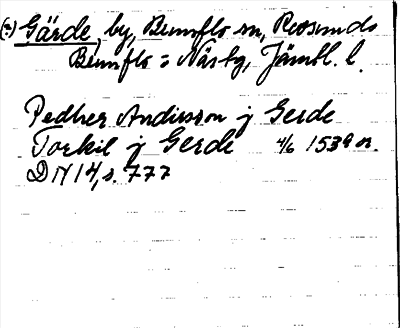 (=) Gärde, by, Brunflo sn, Revsunds
Brunflo o Näs tg, Jämtl. l.
Pedher Andersson j Gerde
Torkil j Gerde 4/6 1539 or.
DN 14, s. 777